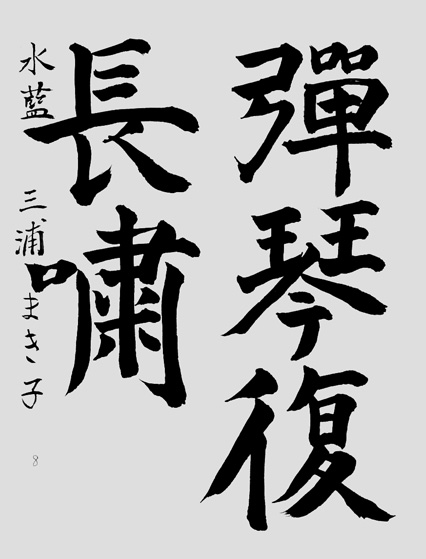 彈琴復
長嘯
水藍 三浦まき子
8